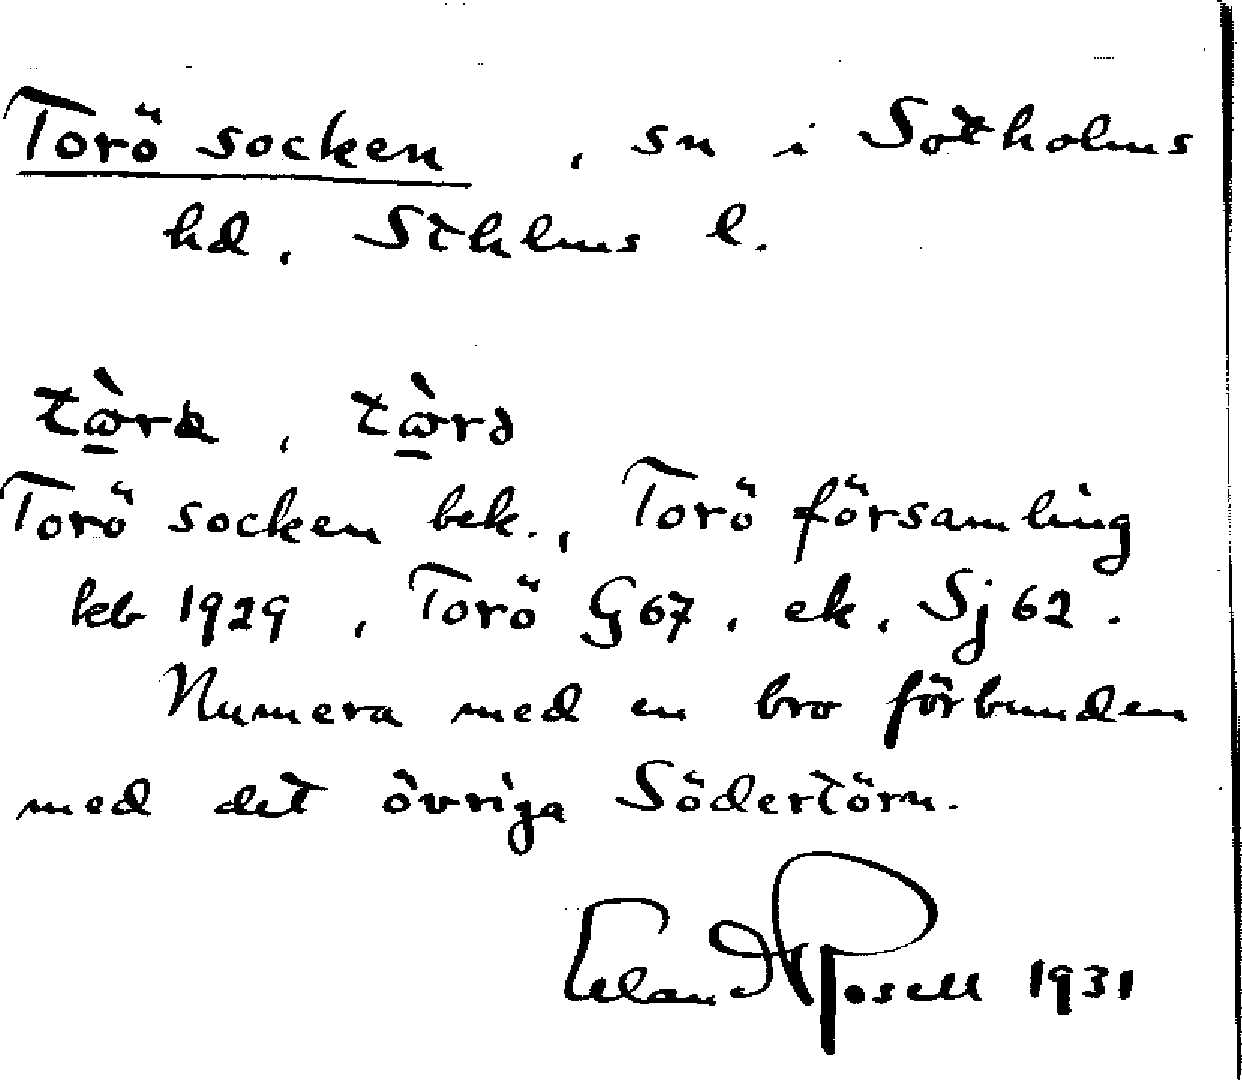 Torö socken, sn i Sotholms
hd, Sthlms l.
Torö socken bek., Torö församling
kb 1929, Torö G67, ek. Sj 62.
Numera med en bro förbunden
med det övriga Södertörn.
Erland Rosell 1931